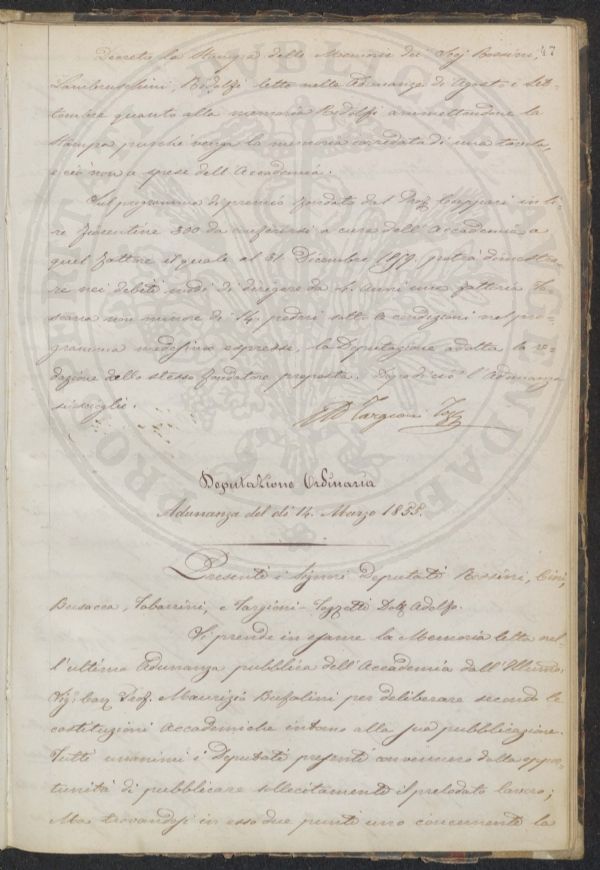 47
Decreta la Stampa delle Memorie dei Socj Rossini,
Lambruschini, Ridolfi lette nelle Adunanze di Agosto e Set-
tembre quanto alla memoria Ridolfi ammettendone la
Stampa purché venga la memoria corredata di una tavola,
e ciò non a spese dell'Accademia.
Sul programma di premio fondato dal Prof. Cuppari in li-
re fiorentine 300 da conferirsi a cura dell'Accademia a
quel fattore il quale al 31 Dicembre 1857 potrà dimostra-
re nei debiti modi di dirigere da anni una fattoria To-
scana non minore di 14 poderi sotto le condizioni nel pro-
gramma medesimo espresse, la Deputazione adotta la re-
dazione dallo stesso fondatore proposta. Dopodiciò l'Adunanza
si discioglie.
AD Targioni Tozz
Deputazione Ordinaria
Adunanza del dì 14. Marzo 1855.
Presenti i Signori Deputati Rossini, Cini,
Busacca, Tabarrini, e Targioni-Tozzetti Dott. Adolfo.
Si prende in esame la Memoria letta nel-
l'ultima Adunanza pubblica dell'Accademia dall'Illmo.
Sig. Cav. Prof. Maurizio Bufalini per deliberare secondo le
costituzioni Accademiche intorno alla sua pubblicazione.
Tutti unanimi i Deputati presenti convennero della oppor-
tunità di pubblicare sollecitamente il prelodato lavoro;
Ma trovandosi in esso due punti uno concernente la